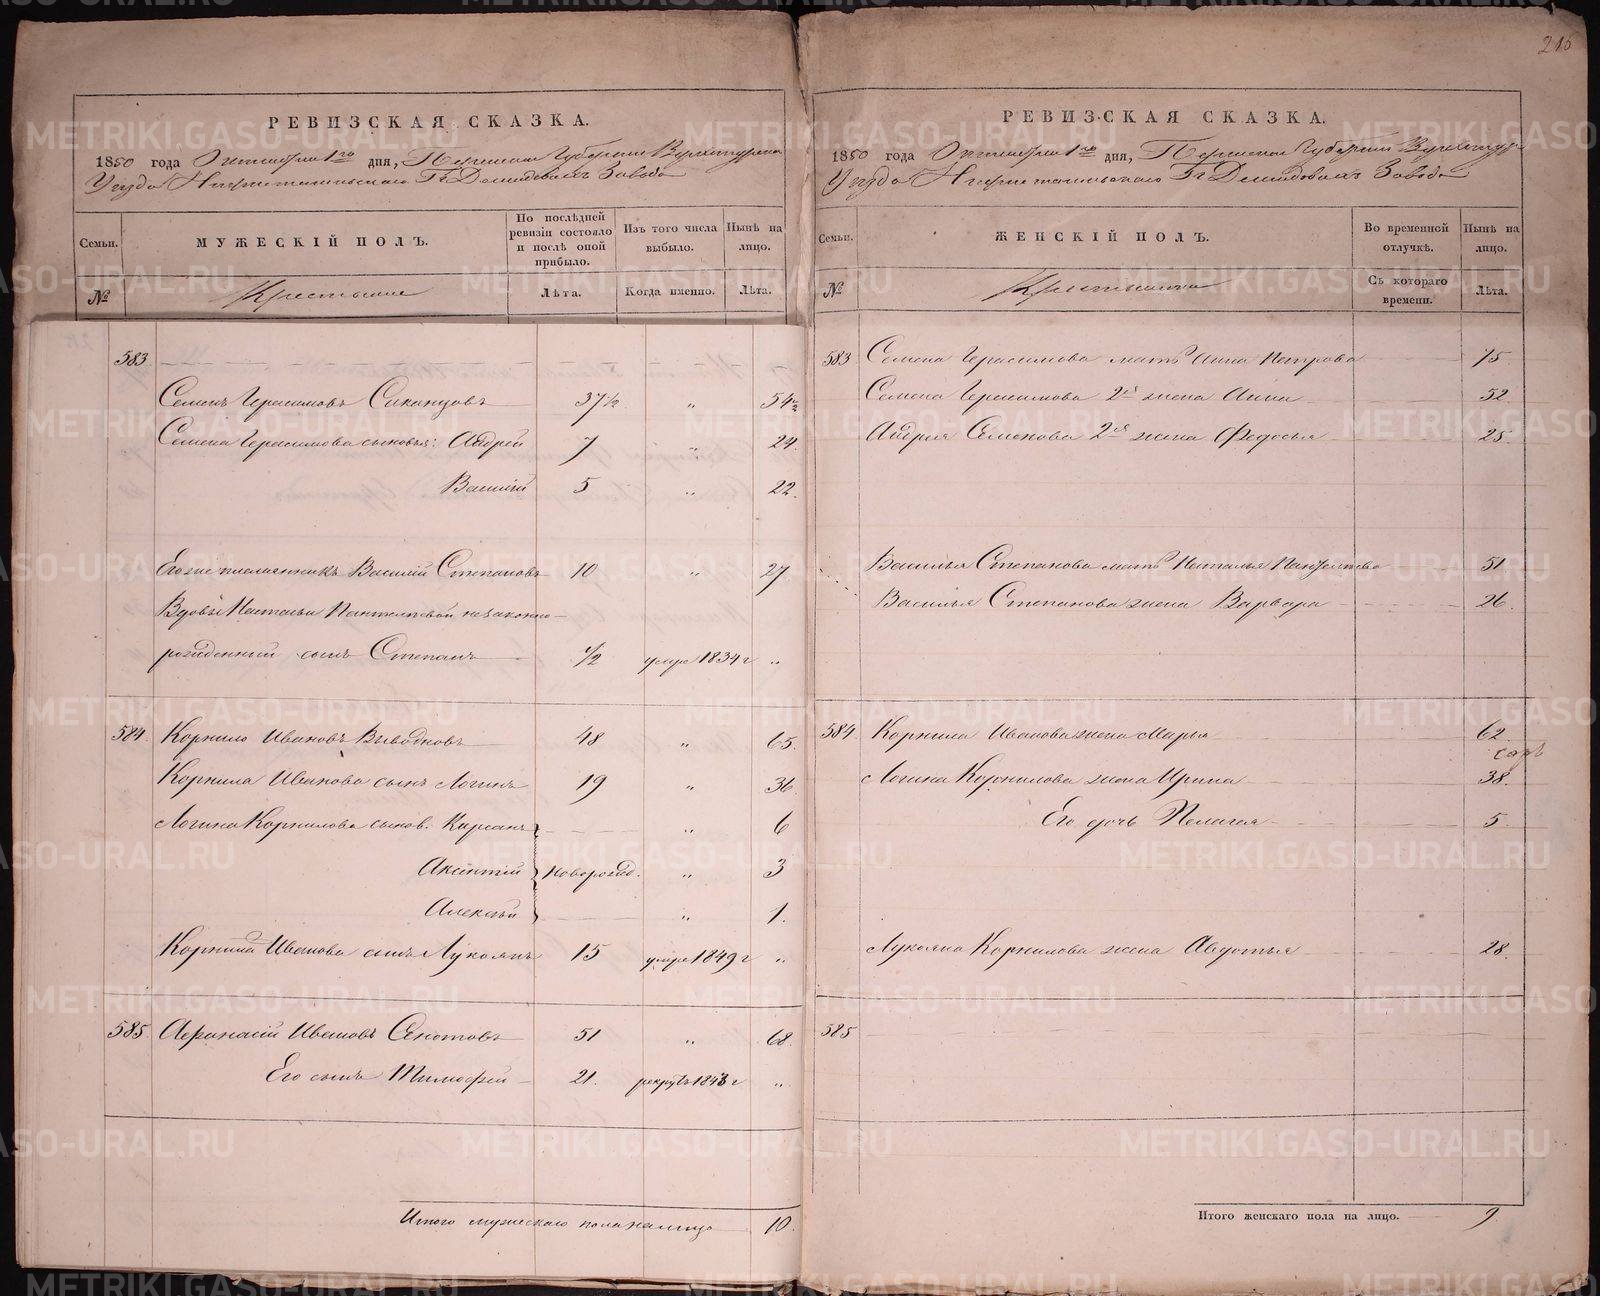 216
РЕВИЗСКАЯ СКАЗКА.
1850 года Октября 1го дня, Пермской Губернии Верхотурскаго
Уезда Нижнетагильскаго Гг Демидовыхъ Завода
Семьи.
МУЖЕСКІЙ ПОЛЪ.
По послѣдней ревизіи состояло и послѣ оной прибыло.
Изъ того числа выбыло.
Нынѣ на лицо.
№
Крестьяне
Лѣта.
Когда именно.
Лѣта.
583
Семенъ Герасимовъ 37½ " 54½
Семена Герасимова сыновья: Андрей 7 " 24
Василій 5 " 22.
Его же племянникъ Василій Степановъ 10 " 27
Вдовы Натальи Пантелѣевой незаконно-
рожденный сынъ Степанъ ½ умре 1834 г "
584. Корнило Ивановъ Выводковъ 48 " 65.
Корнила Иванова сынъ Логинъ 19 " 36
Логина Корнилова сынов. Кирсанъ " 6
Аксентій новорожд. " 3
Алексѣй " 1.
Корнила Иванова сынъ Лукоянъ 15 умре 1849 г "
585. Афанасій Ивановъ 51 " 68.
Его сынъ Тимофей 21. рекрутъ 1848 г "
Итого мужескаго пола налицо 10.
РЕВИЗСКАЯ СКАЗКА.
1850 года Октября 1го дня, Пермской Губерніи Верхотур
Уезда Нижнетагильскаго Гг Демидовыхъ Завода
Семьи.
ЖЕНСКІЙ ПОЛЪ.
Во временной отлучкѣ.
Нынѣ на лицо.
№
Крестьянки
Съ котораго времени.
Лѣта.
583 Семена Герасимова мать Анна Петрова 75
Семена Герасимова 2я жена Анна 52
Андрея Семенова 2я жена Федосья 25.
Василья Степанова мать Наталья Пантелѣева 51
Василья Степанова жена Варвара 26.
584 Корнила Иванова жена Марья 62
Логина Корнилова жена Ирина 38.
Его дочь Пелагея 5.
Лукояна Корнилова жена Авдотья 28.
585
Итого женскаго пола на лицо. 9.
METRIKI.GASO-URAL.RU